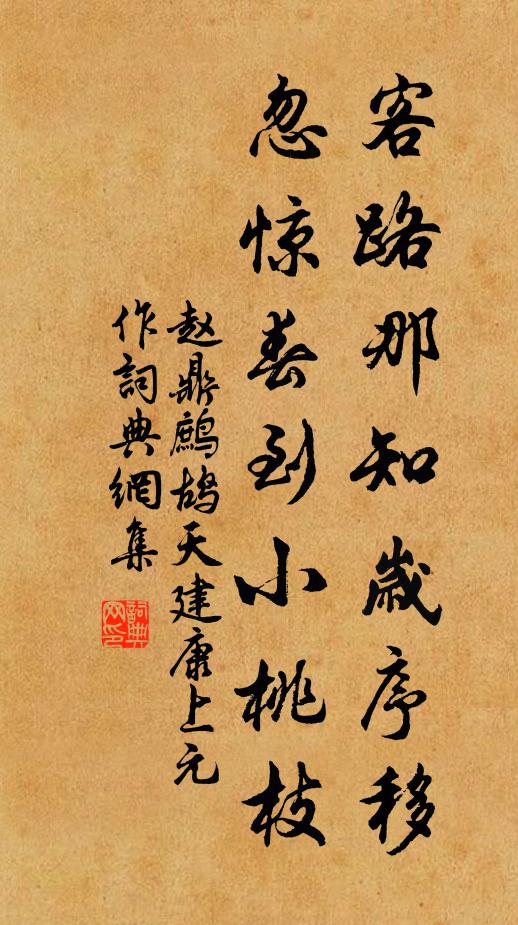 客路那知歲序移
忽惊春到小桃枝
赵鼎鹧鸪天建康上元
作詞典網集
詞典
网印